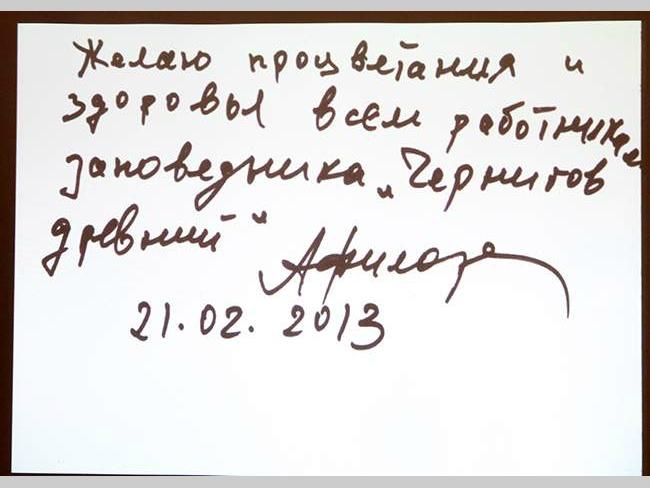 Желаю процветания и
здоровья всем работникам
заповедника „Чернигов
древний"
21.02.2013